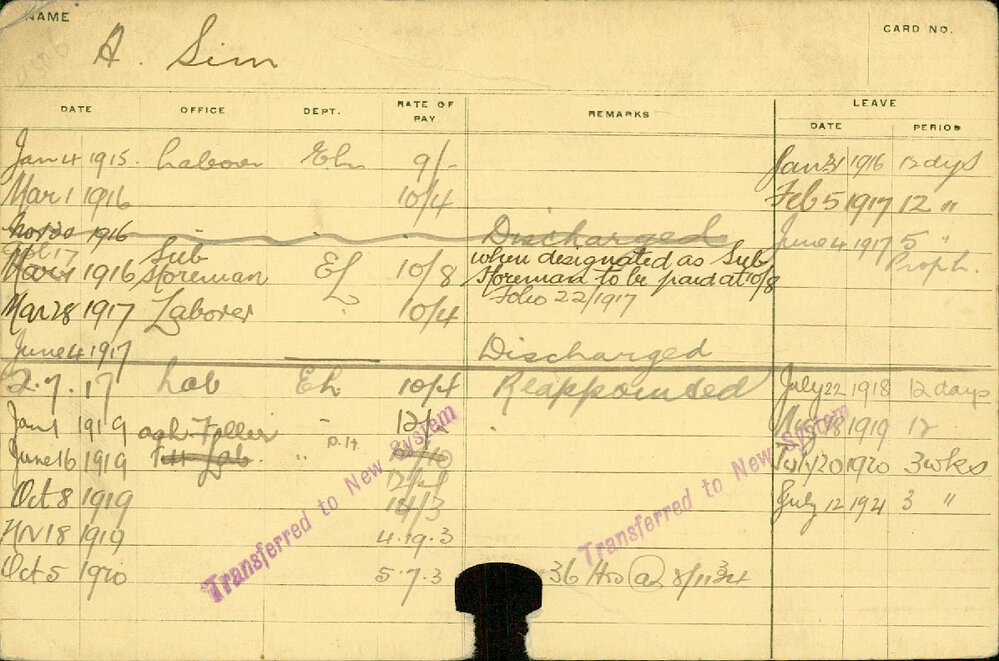 NAME
CARD NO.
A. Sim
DATE OFFICE DEPT. RATE OF PAY REMARKS LEAVE
DATE PERIOD
Jan 4 1915. Laborer 9/- Jan 31 1916 12 days
Mar 1 1916 10/4 Feb 5 1917 12 "
Nov 30 1916 Discharged June 4 1917 5 "
Proph.
Mar 1 1916 Sub Storeman 10/8 when designated as Sub
Storeman to be paid at 10/8
Folio 22/1917
Mar 28 1917 Laborer " 10/4
June 4 1917 Discharged
2.7.17 Lab 10/4 Reappointed July 22 1918 12 days
Jan 1 1919 12/2 1919 12
June 16 1919 " July 20 1920 3 wks
Oct 8 1919 14/3 July 12 1921 3 "
Nov 18 1919 4.19.3
Oct 5 1920 5.7.3 36 Hrs @
Transferred to New System
Transferred to New System